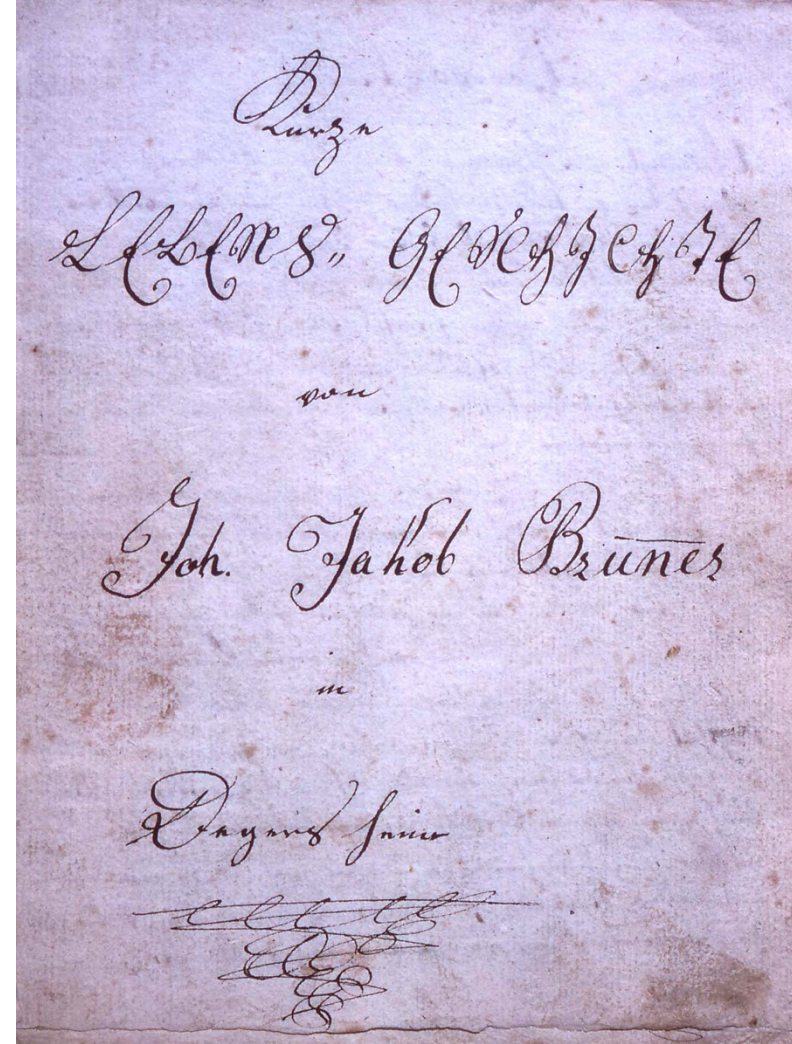 Kurze
LEBENS„ GESCHICHTE
von
Joh. Jakob Brūner
in
Degersheim